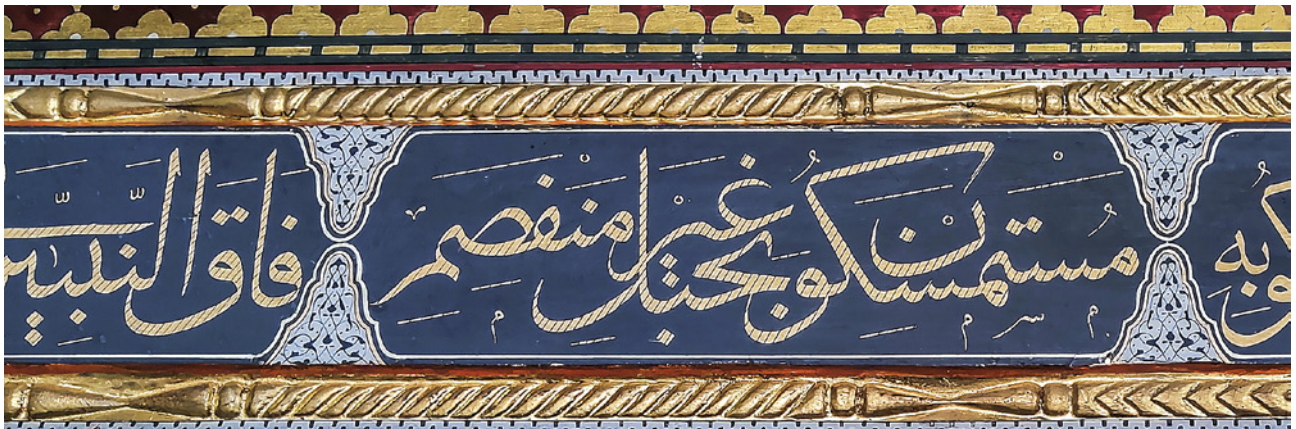 كو به مستمسكون بحبل غير منفصم فاق النبيين